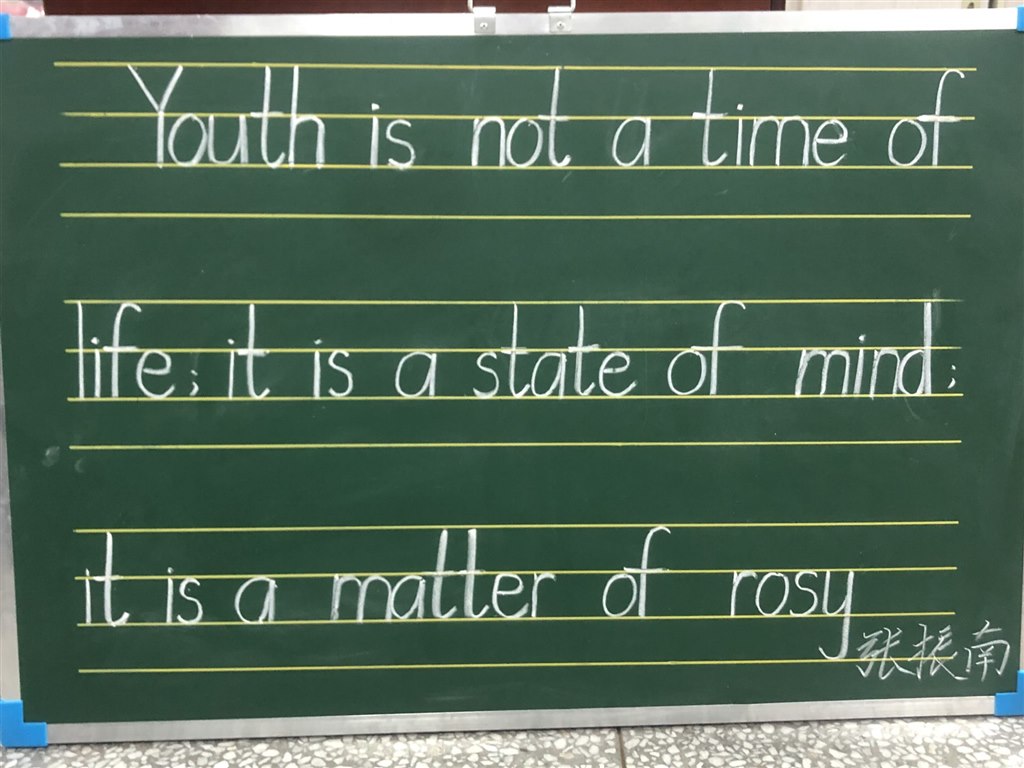 Youth is not a time of
life; it is a state of mind;
it is a matter of rosy
张振南